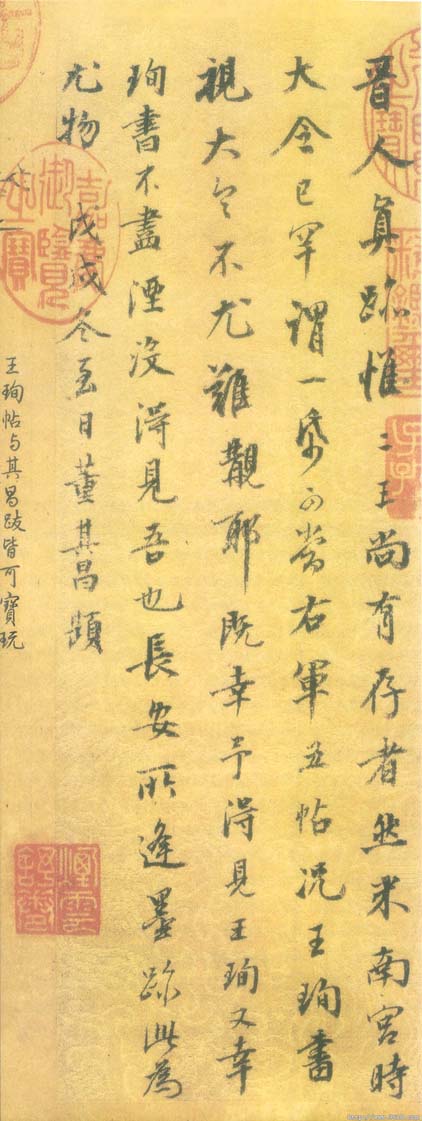 晉人真跡惟二王尚有存者然米南宮時
大令已罕謂一帋可當右軍五帖況王珣書
視大令不尤難覯耶既幸予得見王珣又幸
珣書不盡湮沒得見吾也長安所逢墨跡此為
尤物 戊戌冬至日董其昌題
王珣帖与其昌跋皆可寶玩
嘉慶御覽之寶